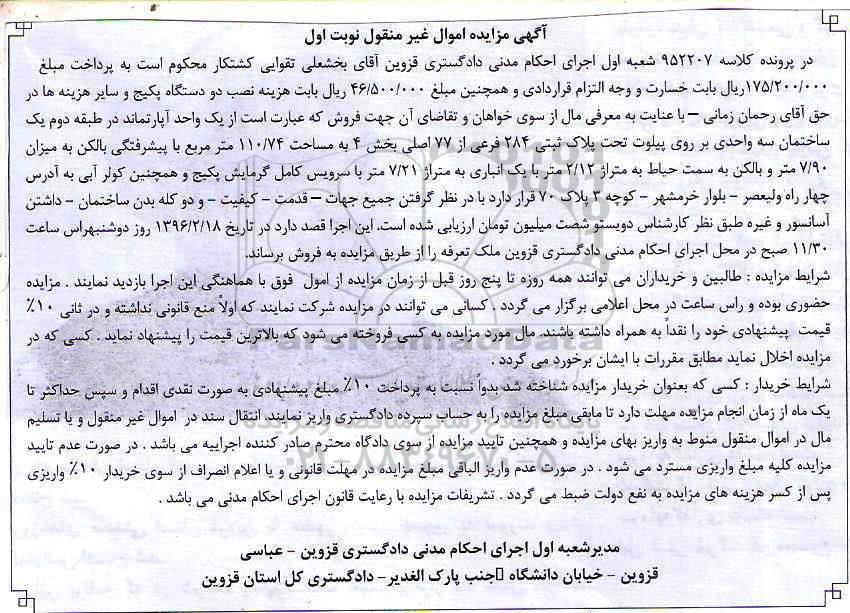 آگهی مزایده اموال غیر منقول نوبت اول
در پرونده کلاسه ۹۵۲۲۰۷ شعبه اول اجرای احکام مدنی دادگستری قزوین آقای بخشعلی تقوایی کشتکار محکوم است به پرداخت مبلغ
۱۷۵/۲۰۰/۰۰۰ریال بابت خسارت و وجه التزام قراردادی و همچنین مبلغ ۴۶/۵۰۰/۰۰۰ ریال بابت هزینه نصب دو دستگاه پکیج و سایر هزینه ها در
حق آقای رحمان زمانی – با عنایت به معرفی مال از سوی خواهان و تقاضای آن جهت فروش که عبارت است از یک واحد آپارتماند در طبقه دوم یک
ساختمان سه واحدی بر روی پیلوت تحت پلاک ثبتی ۲۸۴ فرعی از ۷۷ اصلی بخش ۴ به مساحت ۱۱۰/۷۴ متر مربع با پیشرفتگی بالکن به میزان
۷/۹۰ متر و بالکن به سمت حیاط به متراژ ۲/۱۲ متر با یک انباری به متراژ ۷/۲۱ متر با سرویس کامل گرمایش پکیج و همچنین کولر آبی به آدرس
چهار راه ولیعصر – بلوار خرمشهر – کوچه ۲ پلاک ۷۰ قرار دارد با در نظر گرفتن جمیع جهات – قدمت – کیفیت – و دو کله بدن ساختمان – داشتن
آسانسور و غیره طبق نظر کارشناس دویستو شصت میلیون تومان ارزیابی شده است. این اجرا قصد دارد در تاریخ ۱۳۹۶/۲/۱۸ روز دوشنبهراس ساعت
۱۱/۳۰ صبح در محل اجرای احکام مدنی دادگستری قزوین ملک تعرفه را از طریق مزایده به فروش برساند.
شرایط مزایده : طالبین و خریداران می توانند همه روزه تا پنج روز قبل از زمان مزایده از امول فوق با هماهنگی این اجرا بازدید نمایند . مزایده
حضوری بوده و راس ساعت در محل اعلامی برگزار می گردد . کسانی می توانند در مزایده شرکت نمایند که اولاً منع قانونی نداشته و در ثانی ۱۰٪
قیمت پیشنهادی خود را نقداً به همراه داشته باشند. مال مورد مزایده به کسی فروخته می شود که بالاترین قیمت را پیشنهاد نماید . کسی که در
مزایده اخلال نماید مطابق مقررات با ایشان برخورد می گردد .
شرایط خریدار : کسی که بعنوان خریدار مزایده شناخته شد بدواً نسبت به پرداخت ۱۰٪ مبلغ پیشنهادی به صورت نقدی اقدام و سپس حداکثر تا
یک ماه از زمان انجام مزایده مهلت دارد تا مابقی مبلغ مزایده را به حساب سپرده دادگستری واریز نمایند. انتقال سند در اموال غیر منقول و یا تسلیم
مال در اموال منقول منوط به واریز بهای مزایده و همچنین تایید مزایده از سوی دادگاه محترم صادر کننده اجراییه می باشد . در صورت عدم تایید
مزایده کلیه مبلغ واریزی مسترد می شود . در صورت عدم واریز الباقی مبلغ مزایده در مهلت قانونی و یا اعلام انصراف از سوی خریدار ۱۰٪ واریزی
پس از کسر هزینه های مزایده به نفع دولت ضبط می گردد . تشریفات مزایده با رعایت قانون اجرای احکام مدنی می باشد .
مدیرشعبه اول اجرای احکام مدنی دادگستری قزوین – عباسی
قزوین – خیابان دانشگاه جنب پارک الغدیر– دادگستری کل استان قزوین
ParsNamadData
۰۲۱-۸۸۳۴۹۶۷۰-۵